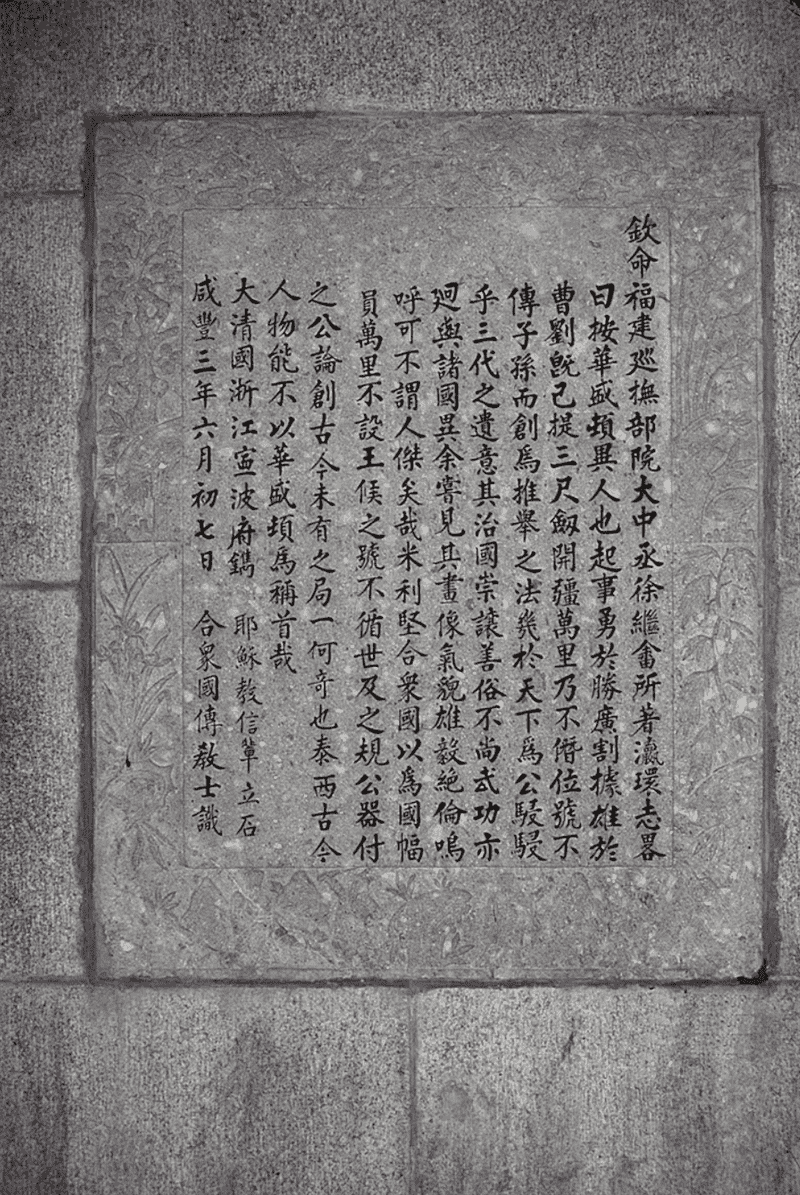 欽命福建巡撫部院大中丞徐繼畬所著瀛環志畧
曰按華盛頓異人也起事勇於勝廣割據雄於
曹劉既已提三尺劔開疆萬里乃不僭位號不
傳子孫而創爲推舉之法幾於天下爲公駸駸
乎三代之遺意其治國崇讓善俗不尚武功亦
廻與諸國異余嘗見其畫像氣貌雄毅絕倫嗚
呼可不謂人傑矣哉米利堅合衆國以爲國幅
員萬里不設王侯之號不循世及之規公器付
之公論創古今未有之局一何奇也泰西古今
人物能不以華盛頓爲稱首哉
大清國浙江寍波府鐫 耶穌教信輩立石
咸豐三年六月初七日 合衆國傳教士識